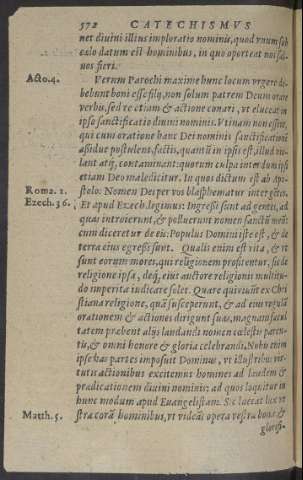 572 CATECHISMVS
net diuini illius imploratio nominis, quod vnum sub
cælo datum est hominibus, in quo oporteat nos sal-
uos fieri.
Acto. 4. Verum Parochi maxime hunc locum vrgere de-
bebunt boni esse filij, non solum patrem Deum orare
verbis, sed re etiam & actione conari, vt eluceat in
ipso sanctificatio diuini nominis. Vtinam non essent,
qui cum oratione hanc Dei nominis sanctificationē
aßiduè postulent, factis, quantū in ipsis est, illud vio-
lant atq́; contaminant: quorum culpa interdum ipsi
etiam Deo maledicitur. In quos dictum est ab Apo-
Roma. 2. stolo: Nomen Dei per vos blasphematur inter gētes.
Ezech. 36. Et apud Ezech. legimus: Ingreßi sunt ad gentes, ad
quas introierunt, & polluerunt nomen sanctū meū:
cum diceretur de eis: Populus Domini iste est, & de
terra eius egreßi sunt. Qualis enim est vita, & vt
sunt eorum mores, qui religionem profitentur, sic de
religione ipsa, deq́; eius auctore religionis multitu-
do imperita iudicare solet. Quare qui viuūt ex Chri
stiana religione, quā susceperunt, & ad eius regulā
orationem & actiones dirigunt suas, magnam facul
tatem præbent alijs laudandi nomen cælestis paren-
tis, & omni honore & gloria celebrandi. Nobis enim
ipse has partes imposuit Dominus, vt illustribus vir-
tutis actionibus excitemus homines ad laudem &
prædicationem diuini nominis: ad quos loquitur in
hunc modum apud Euangelistam. Sic luceat lux ve-
Matth. 5. stra corā hominibus, vt videāt opera vestra bona &
glorifi-